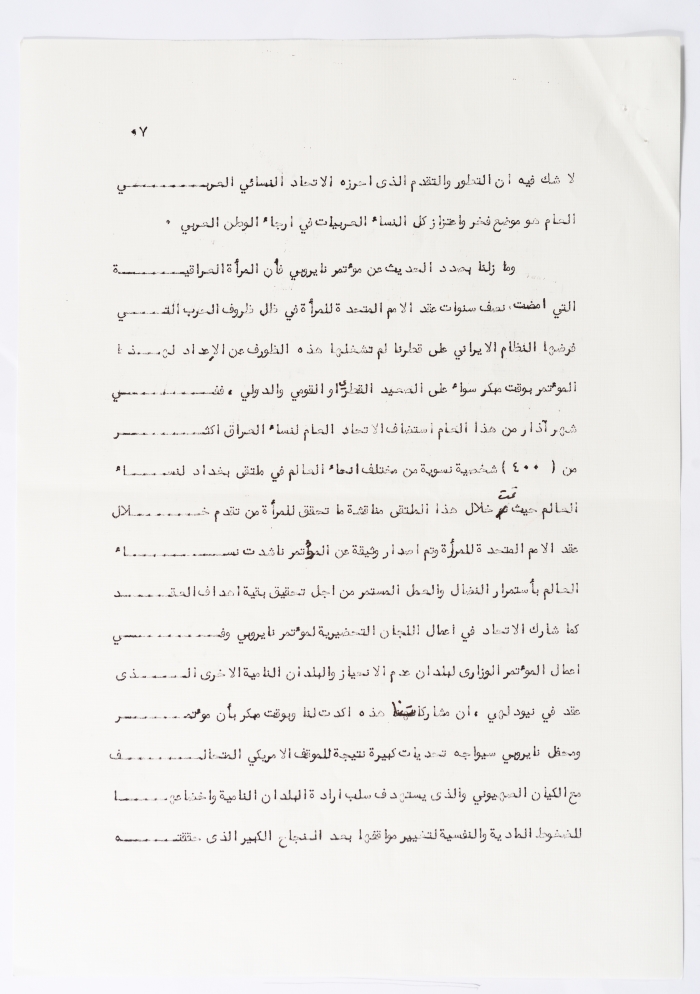 ٩٧
لا شك فيه ان التطور والتقدم الذى احرزه الاتحاد النسائي العربـــــــي
العام هو موضع فخر واعتزاز كل النساء العربيات في ارجاء الوطن العربي .
وما زلنا بصدد الحديث عن موءتمر نايروبي فأن المرأة العراقيـــــــة
التي امضت نصف سنوات عقد الامم المتحدة للمرأة في ظل ظروف الحرب التـــــي
فرضها النظام الايراني على قطرنا لم تشغلها هذه الظلورف عن الإعداد لهـــــذا
الموءتمر بوقت مبكر سواء على الصعيد القطرى او القومي والدولي ، ففـــــــي
شهر آذار من هذا العام استضاف الاتحاد العام لنساء العراق اكثـــــــر
من ( ٤٠٠ ) شخصية نسوية من مختلف انحاء العالم في ملتقى بغداد لنســـــاء
العالم حيث تمت خلال هذا الملتقى مناقشة ما تحقق للمرأة من تقدم خـــــــلال
عقد الامم المتحدة للمرأة وتم اصدار وثيقة عن المؤتمر ناشدت نســـــــاء
العالم بأستمرار النضال والعمل المستمر من اجل تحقيق بقية اهداف العقـــــد
كما شارك الاتحاد في اعمال اللجان التحضيرية لموءتمر نايروبي وفـــــــي
اعمال الموءتمر الوزارى لبلدان عدم الانحياز والبلدان النامية الاخرى الـــــذى
عقد في نيودلهي ، ان مشاركاتنا هذه اكدت لنا وبوقت مبكر بأن موءتمـــــــر
ومحفل نايروبي سيواجه تحديات كبيرة نتيجة للموقف الامريكي المتحالـــــــف
مع الكيان الصهيوني والذى يستهدف سلب ارادة البلدان النامية واخضاعهـــــا
للضغوط المادية والنفسية لتغيير مواقفها بعد النجاح الكبير الذى حققتـــــــه